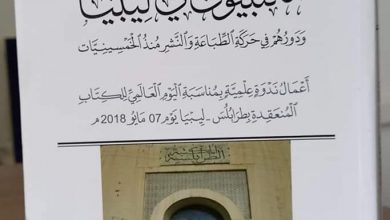 فِي لِيبْيَا
وَدَورُهُمْ فِي حَرَكَةِ الطِّبَاعَةِ وَالنَّشْرِ مُنذُ الْخَمْسِينِيَّات
أَعْمَالُ نَدْوَةٍ عِلْمِيَّةٍ بِمُنَاسَبَةِ الْيَوْمِ الْعَالَمِيِّ لِلْكِتَابِ
الْمُنعَقِدَةِ بِطَرَابُلُسَ - لِيبْيَا يَوْمَ 07 مَايُو 2018م